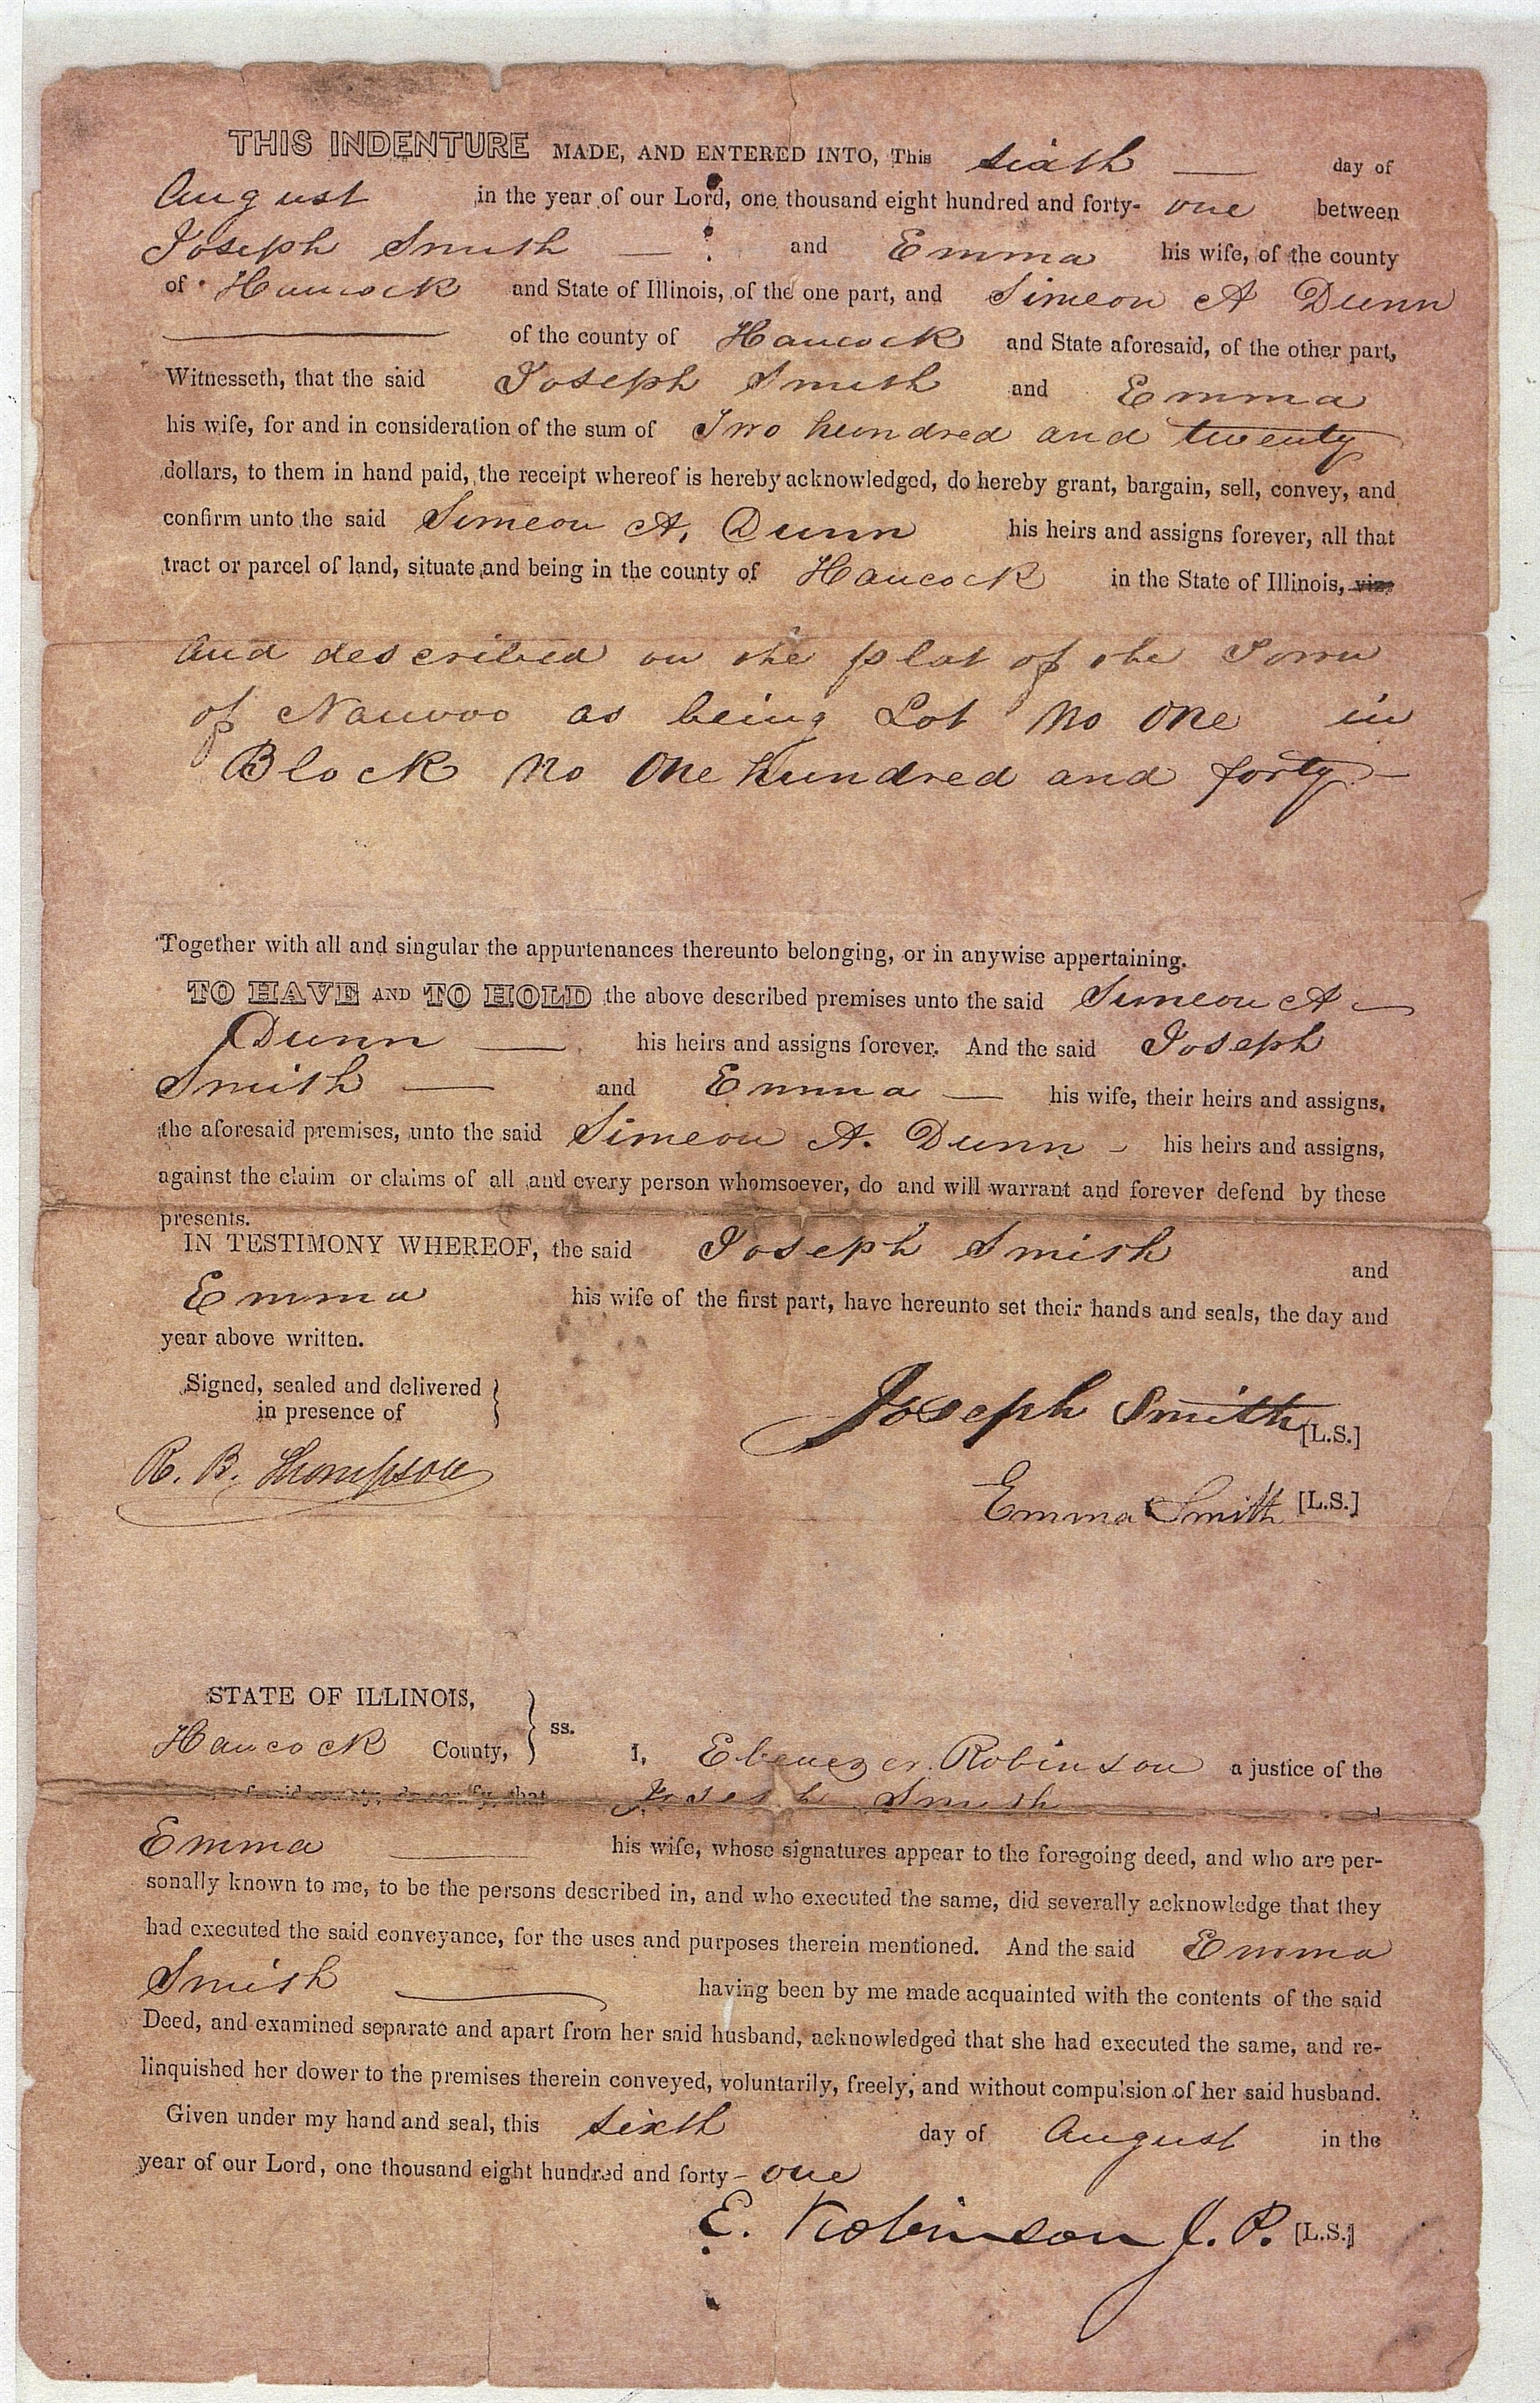 THIS INDENTURE MADE, AND ENTERED INTO, This sixth — day of
August in the year of our Lord, one thousand eight hundred and forty- one between
Joseph Smith — and Emma his wife, of the county
of Hancock and State of Illinois, of the one part, and Simeon A Dunn
of the county of Hancock and State aforesaid, of the other part,
Witnesseth, that the said Joseph Smith and Emma
his wife, for and in consideration of the sum of Two hundred and twenty
dollars, to them in hand paid, the receipt whereof is hereby acknowledged, do hereby grant, bargain, sell, convey, and
confirm unto the said Simeon A. Dunn his heirs and assigns forever, all that
tract or parcel of land, situate and being in the county of Hancock in the State of Illinois, viz:
and described on the plat of the Town
of Nauvoo as being Lot No One in
Block No One hundred and forty —
Together with all and singular the appurtenances thereunto belonging, or in anywise appertaining.
TO HAVE AND TO HOLD the above described premises unto the said Simeon A —
Dunn — his heirs and assigns forever. And the said Joseph
Smith — and Emma — his wife, their heirs and assigns,
the aforesaid premises, unto the said Simeon A. Dunn - his heirs and assigns,
against the claim or claims of all and every person whomsoever, do and will warrant and forever defend by these
presents.
IN TESTIMONY WHEREOF, the said Joseph Smith and
Emma his wife of the first part, have hereunto set their hands and seals, the day and
year above written.
Signed, sealed and delivered
in presence of
Joseph Smith [L.S.]
R. B. Thompson
Emma Smith [L.S.]
STATE OF ILLINOIS,
Hancock County, } ss.
I, Ebenezer Robinson a justice of the
aforesaid county, do certify, that Joseph Smith
Emma — his wife, whose signatures appear to the foregoing deed, and who are per-
sonally known to me, to be the persons described in, and who executed the same, did severally acknowledge that they
had executed the said conveyance, for the uses and purposes therein mentioned. And the said Emma
Smith — having been by me made acquainted with the contents of the said
Deed, and examined separate and apart from her said husband, acknowledged that she had executed the same, and re-
linquished her dower to the premises therein conveyed, voluntarily, freely, and without compulsion of her said husband.
Given under my hand and seal, this sixth day of August in the
year of our Lord, one thousand eight hundred and forty - one
E. Robinson J. P. [L.S.]